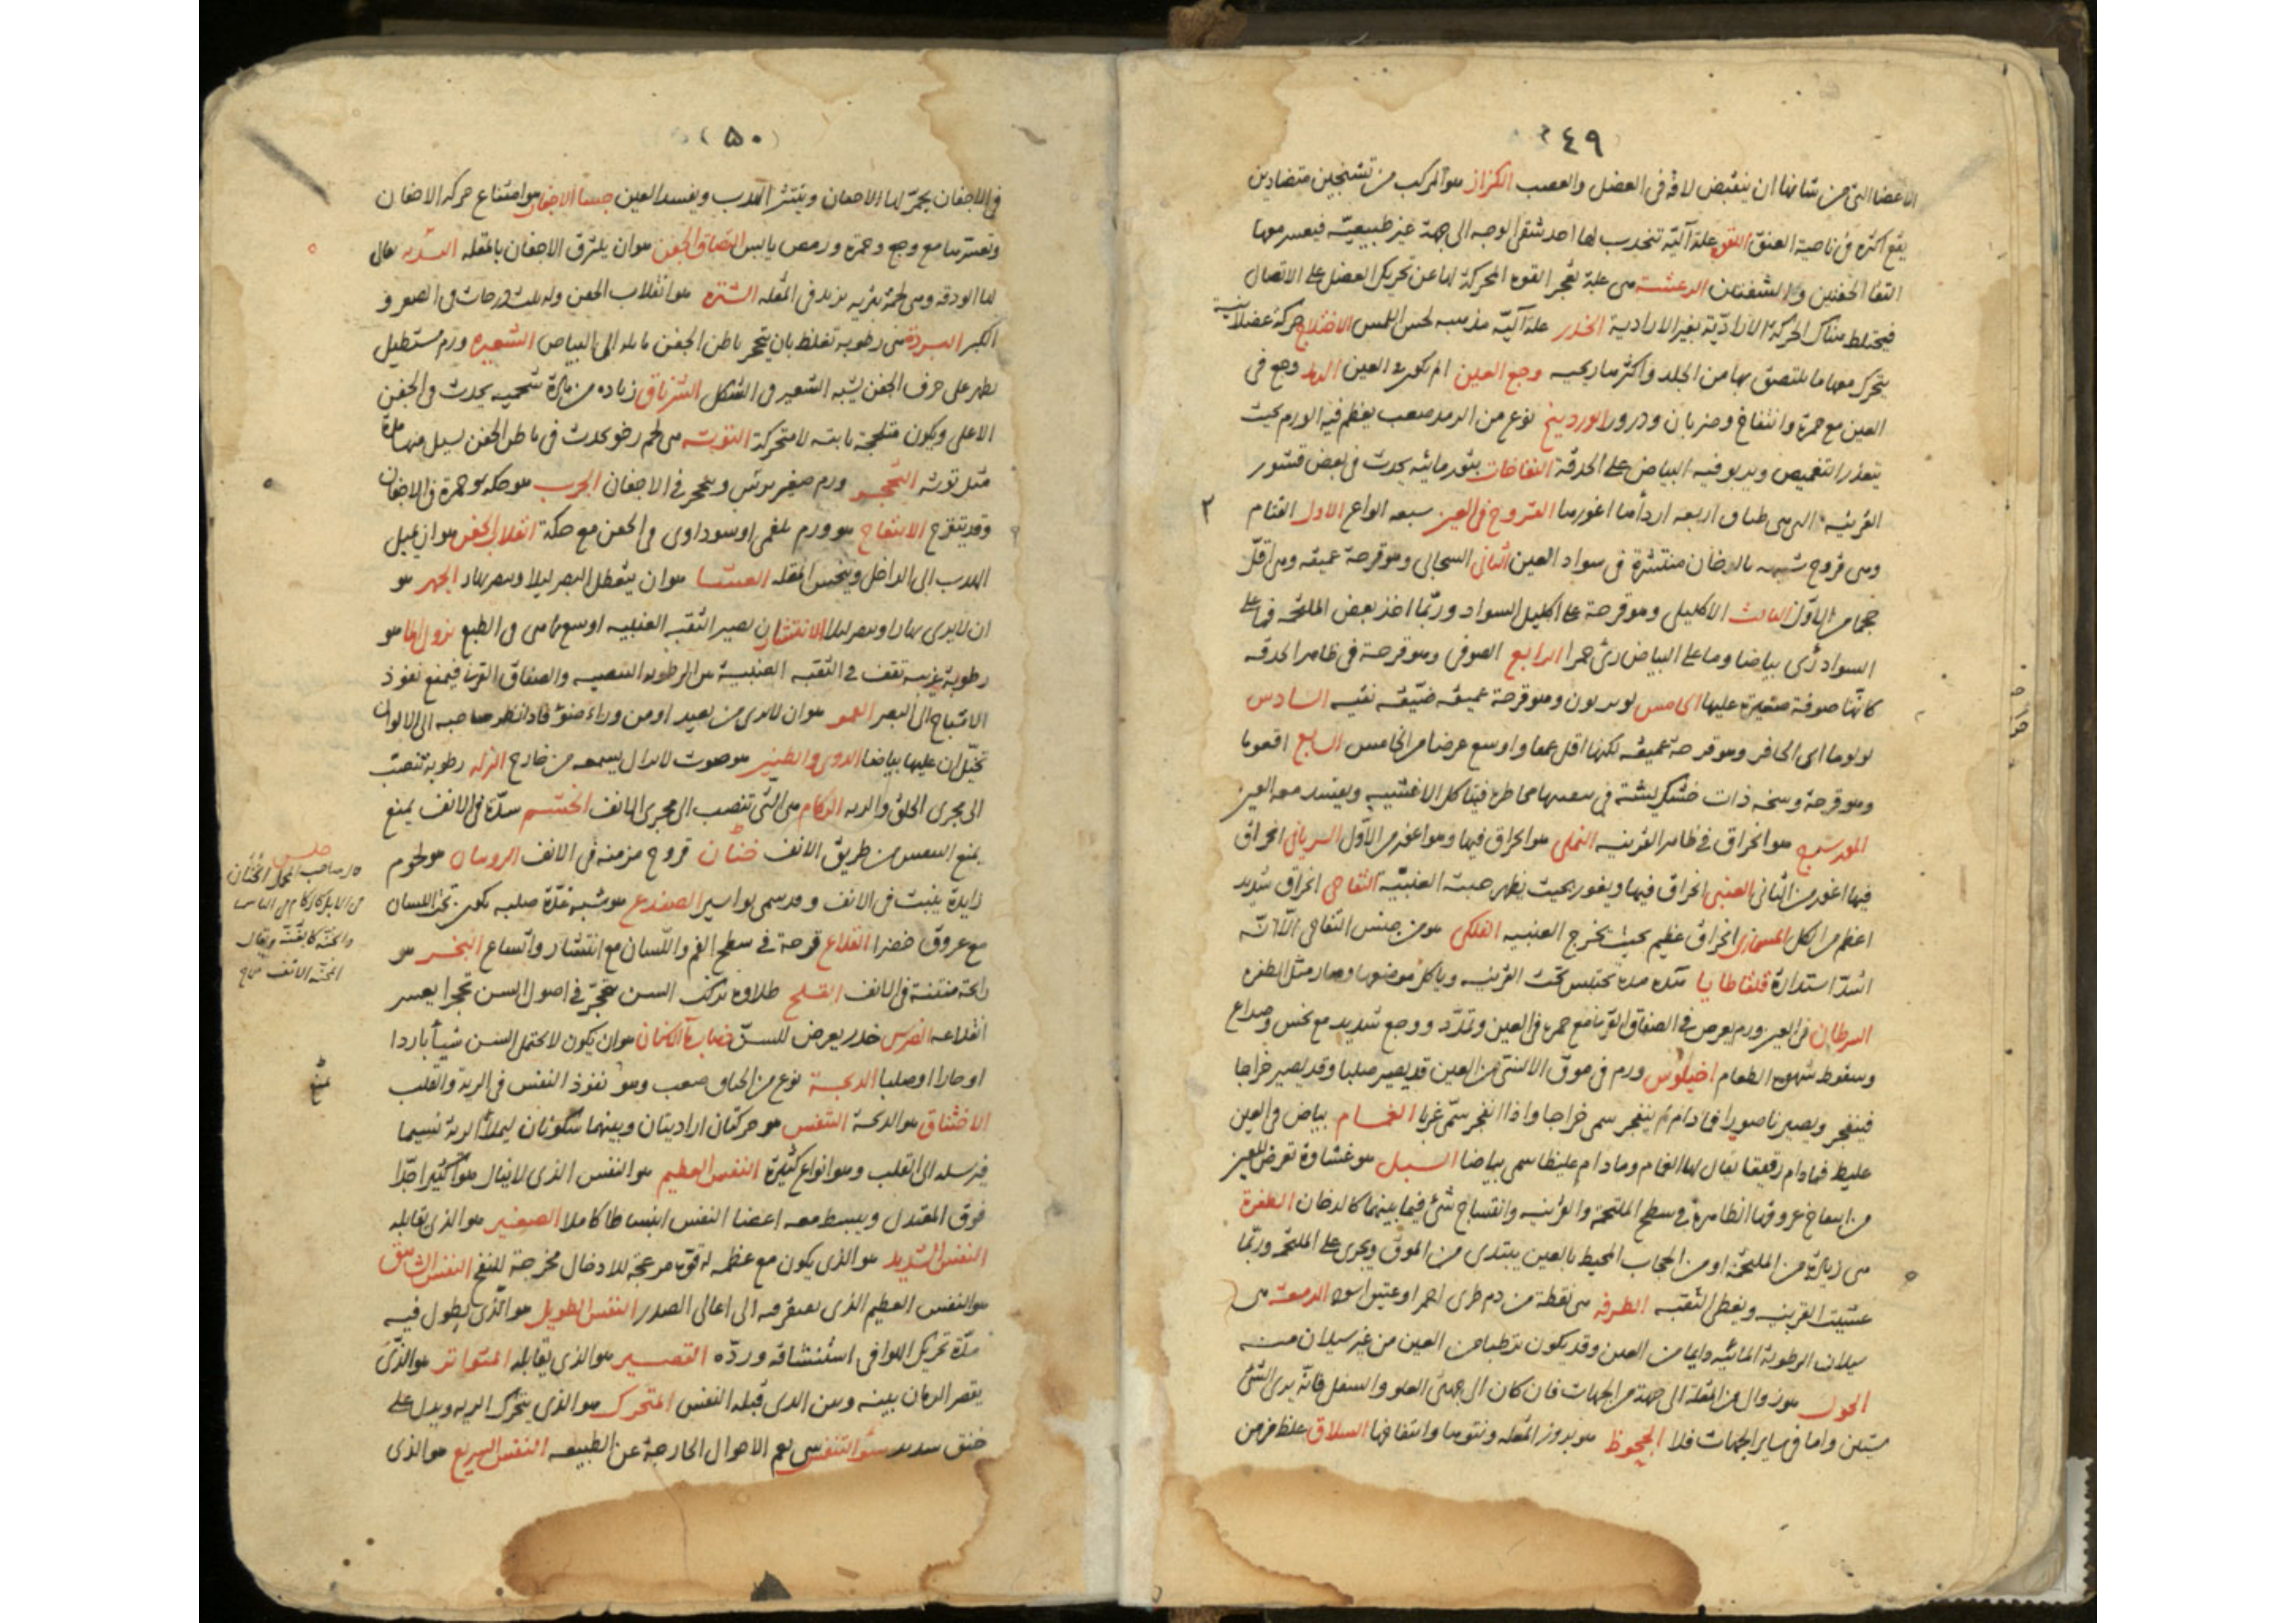 ٤٩
الاعضا التى من شانها ان ينقبض لافة فى العضل والعصب الكزاز هو المركب من تشنجين متضادين
يقع اكثره فى ناحية العنق اللقوه علة آلية تنجذب لها احد شقى الوجه الى جهة غير طبيعيّة فيعسر معها
التقا الجفنين والشفتان الرعشة هى علة لعجز القوه المحركة لها عن تحريك العضل على الاتصال
فيختلط هناك الحركة الاراديّة بغير الارادية الخدر علة آليّة مذهبه لحس اللمس الاختلاج حركة عضلانية
يتحرك معها ما يلتصق بها من الجلد واكثرها ريحيه وجع العين الم يكون فى العين الرمد وجع فى
العين مع حمرة وانتفاخ وضربان ودرور الوردينج نوع من الرمد صعب يعظم فيه الورم بحيث
يتعذر التغميض ويربو فيه البياض على الحدقة النفاخات بثور مائيه يحدث فى بعض قشور
القرنيه التى هى طباق اربعه اردأها اغورها القروح فى العين سبعه انواع الاول القتام
وهى قروح شبيهه بالدخان منتشرة فى سواد العين الثانى السحابى وهو قرحة عميقه وهى اقلّ
حجما من الاوّل الثالث الاكليلى وهو قرحة على اكليل السواد وربّما اخذ بعض الملتحمه فما على
السواد رُى بياضا وما على البياض رئ حمرا الرابع الصوفى وهو قرحة فى ظاهر الحدقه
كانّها صوفة صغيرة عليها الخامس لوبريون وهو قرحة عميقه ضيّقه نقيه السادس
لولوما اى الحافر وهو قرحة عميقه لكنها اقل عمقا واوسع عرضا من الخامس السابع افقوما
وهو قرحة وسخه ذات خشكريشة فى تنقيتها مخاطره فيتاكل الاغشيه ويفسد معه العين
المورسرج هو انخراق فى ظاهر القرنيه النملى هو انخراق فيها وهو اغور من الاوّل الذبابى انخراق
فيها اغور من الثانى العنبى انخراق فيها ويغور بحيث يظهر حبت العنبيّة التفاحى انخراق شديد
اعظم من الكل المسمارى انخراق عظيم بحيث يخرج العنبيه الفلكى هو من جنس التفاحى الّا انّه
اشدّ استدارة قلقاطايا مدّه تحتبس تحت القرنيه وياكل موضعها وصار مثل الظفره
السرطان فى العين ورم يعرض فى الصفاق القرنى مع حمرة فى العين وتمدّد ووجع شديد مع نخس وصداع
وسقوط شهوة الطعام اخيلوس ورم فى موق الانسى من العين قد يصير صلبا وقد يصير خراجا
فينفجر ويصير ناصورا فما دام لم ينفجر سمى خراجا واذا انفجر سمّى غربا الغمام بياض فى العين
غليظ فمادام رقيقا يقال لها الغمام ومادام غليظا سمى بياضا السبل هو غشاوة تعرض للعين
من انتفاخ عروقها الظاهرة فى سطح الملتحمة والقرنيه وانتساج شئ فيما بينهما كالدخان الظفرة
هى زيادة من الملتحمة او من الحجاب المحيط بالعين يبتدى من الموق ويجرى على الملتحمه وربّما
غشيت القرنيه ويغطى الثقبه الطرفه هى نقطة من دم طرى احمر او عتيق اسود الدمعة هى
سيلان الرطوبة المائيّه دايما من العين وقد يكون ترطبا من العين من غير سيلان منه
الحول هو زوال من المقلة الى جهة من الجهات فان كان الى جهتى العلو والسفل فانّه يرى الشئ
شيئين واما فى ساير الجهات فلا الجحوظ هو بروز المقله ونتوها وانتفاخها السلاق غلظ مزمن
(٥٠)
فى الاجفان يحمرّ لها الاجفان وينتثر الهدب ويفسد العين جسا الاجفان هو امتناع حركه الاجفان
وتعسرها مع وجع وحمرة ورمص يابس التصاق الجفن هو ان يلتزق الاجفان بالمقله السدره يقال
لها الودقه وهى لحمة بثريه تزيد فى المقله الشتره هو انقلاب الجفن وله ثلث درجات فى الصغر و
الكبر البردة هى رطوبة تغلظ بان يتحجر باطن الجفن مايله الى البياض الشعيره ورم مستطيل
يظهر على حرف الجفن يشبه الشعير فى الشكل الشرناق زياده من مادّة شحميه يحدث فى الجفن
الاعلى ويكون متلحجة ثابته لا متحركة التوثه هى لحم رخو يحدث فى باطن الجفن يسيل منها مادّة
مثل توثه التحجر ورم صغير يدمى ويتحجر فى الاجفان الجرب هو حكه وحمرة فى الاجفان
وقد يتقرح الانتفاخ هو ورم بلغمى او سوداوى فى الجفن مع حكة انقلاب الجفن هو ان يميل
الهدب الى الداخل وينخس المقله العشا هو ان يتعطل البصر ليلا ويبصر نهارا الجهر هو
ان لا يرى نهارا ويبصر ليلا الانتشار ان يصير الثقبه العنبيه اوسع مما هى فى الطبع نزول الما هو
رطوبة غريبه تقف فى الثقبه العنبيه بين الرطوبه البيضيه والصفاق القرنى فيمنع نفوذ
الاشباح الى البصر القمور هو ان لا يرى من بعيد او من وراء ضوء فاذا نظر صاحبه الى الالوان
تخيّل ان عليها بياضا الدوى والطنين هو صوت لا يزال يسمعه من خارج النزله رطوبة تنصب
الى مجرى الحلق والريه الزكام هى التى تنصب الى مجرى الانف الخشم سدّة فى الانف يمنع
يمنع التنفس من طريق الانف خنان قروح مزمنه فى الانف الاربيان هو لحوم
زايدة ينبت فى الانف وقد سمى بواسير الضفدع هو شبه غدّة صلبه يكون تحت اللسان
مع عروق خضرا القلاع قرحة فى سطح الفم واللسان مع انتشار واتساع البخر هو
رائحة منتنة فى الانف القلح طلاوة تركب السن يتحجر فى اصول السن تحجرا يعسر
انقلاعه الضرس خدر يعرض للسنّ ذهاب ماء الاسنان هو ان يكون لا يحتمل السن شيأ باردا
او حارا او صلبا الذبحة نوع من الخناق صعب وهو نفوذ النفس فى الرية والقلب
الاختناق هو الذبحة التنفس هو حركتان اراديتان وبينهما سكونان ليملأ الرية نسيما
فيرسله الى القلب وهو انواع كثيرة النفس العظيم هو النفس الذى لا ينال هوآ كثيرا جدّا
فوق المعتدل ويبسط معه اعضا النفس انبساطا كاملا الصغير هو الذى يقابله
النفس الشديد هو الذى يكون مع عظمه له قوّت مزعجة للادخال مخرجة للنفخ النفس الشاهق
هو النفس العظيم الذى يضطر معه الى اعالى الصدر النفس الطويل هو الّذى يطول فيه
مدّة تحريك الهوا فى استنشاقه وردّه القصير هو الذى يقابله المتواتر هو الذّى
يقصر الزمان بينه وبين الذى قبله النفس المتحرك هو الذى يتحرك الريه ويدل على
ضيق شديد سوء التنفس هى يعم الاحوال الخارجة عن الطبيعه النفس السريع هو الذى
قال صاحب المجمل الخنان
فى الابل كالزكام فى الناس
والخنّه كالغنّه ويقال
المخنّه الانف